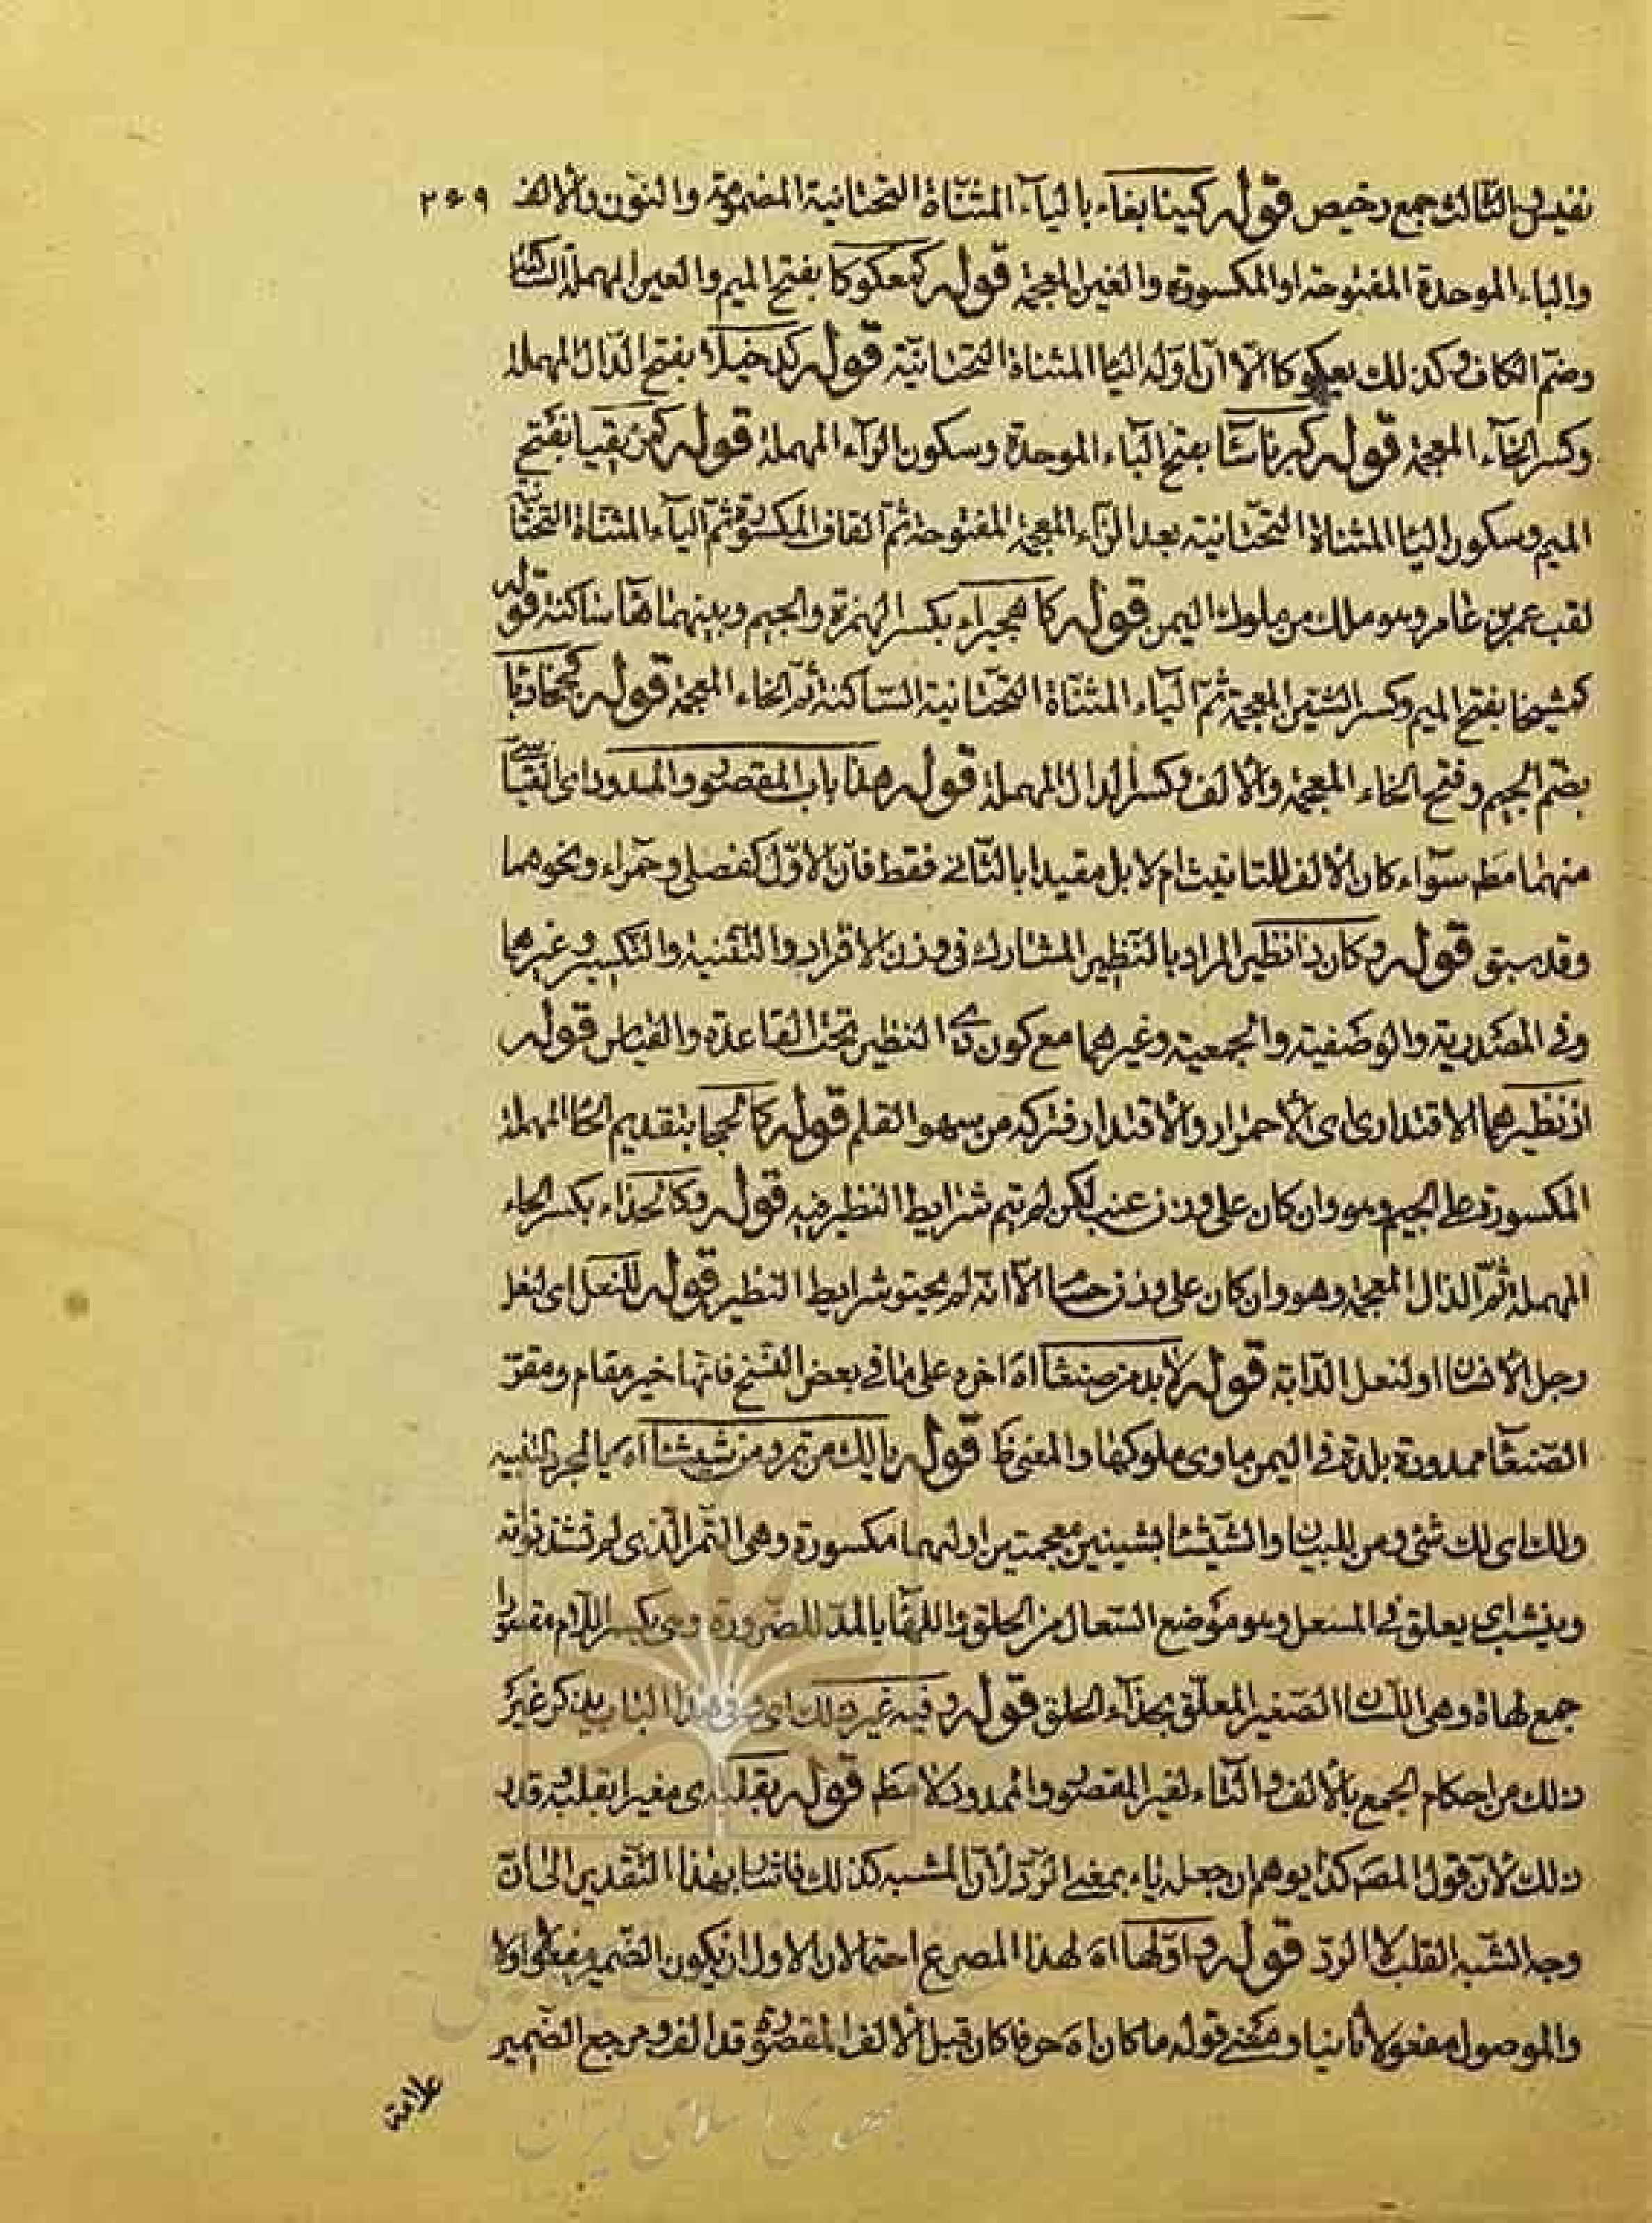 نفیس والثالث جمع رخیص قوله کینابغاء بالیآء المثنّاة التحتانیة المضمومة والنون والالف ۲۶۹
والباء الموحدة المفتوحة او المکسورة والغین المعجمة قوله کمعکوکا بفتح المیم والعین المهملة الساکنة
وضم الکاف وکذلک بعکوکا الّا انّ اوّله الیاء المثناة التحتانیّة قوله کدخیلاء بفتح الدال المهملة
وکسر الخآء المعجمة قوله کبرناساء بفتح البآء الموحدة وسکون الرآء المهملة قوله کمزیقیا بفتح
المیم وسکون الیاء المثناة التحتانیة بعد الزاء المعجمة المفتوحة ثمّ القاف المکسورة ثمّ الیآء المثناة التحتانیة
لقب عمر بن عامر وهو ملک من ملوک الیمن قوله کاهجیراء بکسر الهمزة والجیم وبینهما هاء ساکنة قوله
کمشیخا بفتح المیم وکسر الشین المعجمة ثمّ الیآء المثنّاة التحتانیة الساکنة ثم الخاء المعجمة قوله کجخادبا
بضم الجیم وفتح الخاء المعجمة والالف وکسر الدال المهملة قوله هذا باب المقصور والممدود ای القیاسی
منهما مط سوآء کان الالف للتانیث ام لا بل مقیدا بالثانی فقط فانّ الاوّل کفصلی وحمراء ونحوهما
وقد سبق قوله وکان ذا نظیر المراد بالنظیر المشارک فی وزن الافراد والتثنیة والتکسیر وغیرهما
وفی المصدریة والوصفیة والجمعیة وغیرهما مع کون ذی النظیر تحت القاعدة والقیاس قوله
اذ نظیرهما الاقتدار ای الاحمرار والاقتدار فترکه من سهو القلم قوله کالحجا بتقدیم الحاء المهملة
المکسورة علی الجیم وهو وان کان علی وزن عنب لکن لم یتم شرایط النظیر فیه قوله وکالحذاء بکسر الحاء
المهملة ثمّ الذال المعجمة وهو وان کان علی وزن حساب الّا انّه لم یحتو شرایط النظیر قوله للنعل ای لنعل
رجل الانسان او لنعل الدّابة قوله لابد من صنعا اه اخره علی ما فی بعض النسخ فانها خیر مقام ومقرّ
الصنعاء ممدودة بلدة فی الیمن ماوی ملوکها والمعنی ظ قوله یا لک من تمر ومن شیشاء اه یا لمجرد التنبیه
ولک ای لک شئ ومن للبیان والشیشاء بشینین معجمتین اولهما مکسورة وهی التمر الّذی لم تشتد نواته
وینشب ای یعلق فی المسعل وهو موضع السعال من الحلق واللهاء بالمدّ للضرورة وهی بکسر اللام مقصورا
جمع لهاة وهی اللسان الصغیر المعلّق بحذآء الحلق قوله وفیه غیر ذلک ای وفی هذا الباب یذکر غیر
ذلک من احکام الجمع بالالف والتاء لغیر المقصور والممدود لا مط قوله بقلب ای مغیرا بقلب قدر
ذلک لانّ قول المص کذا یوهم ان جعل یاء بمعنی الردّ لانّ المشبه کذلک فاشار بهذا التقدیر الی انّ
وجه الشبه القلب لا الردّ قوله واوّلها اه لهذا المصرع احتمالان الاول ان یکون الضمیر مفعولا اولا
والموصول مفعولا ثانیا ومعنی قوله ما کان اه حرفا کان قبل الالف المقصورة قد الف ومرجع الضمیر
علامة